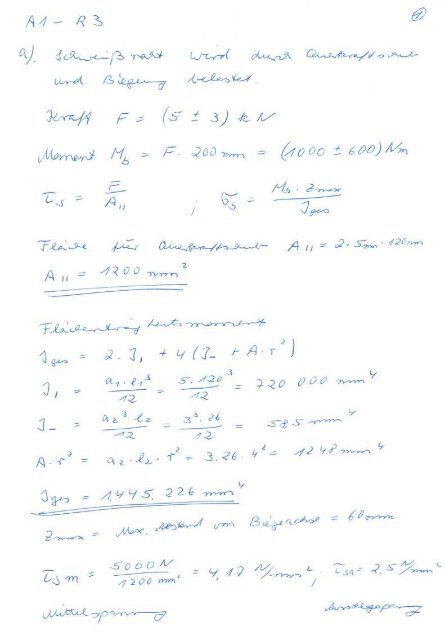 A1 - R3
1
a). Schweißnaht wird durch Querkraftschub
und Biegung belastet.
Kraft F = (5 ± 3) kN
Moment M_b = F · 200 mm = (1000 ± 600) Nm
τ_s = F / A_II ; σ_s = M_b · z_max / J_ges
Fläche für Querkraftschub A_II = 2 · 5mm · 120mm
A_II = 1200 mm²
Flächenträgheitsmoment
J_ges = 2 · J_| + 4 (J_- + A · r²)
J_| = a_1 · l_1³ / 12 = 5 · 120³ / 12 = 720 000 mm⁴
J_- = a_2³ · l_2 / 12 = 3³ · 26 / 12 = 58,5 mm⁴
A · r² = a_2 · l_2 · r² = 3 · 26 · 4² = 1248 mm⁴
J_ges = 1.445.226 mm⁴
z_max = Max. Abstand von Biegeachse = 60mm
τ_sm = 5000 N / 1200 mm² = 4,17 N/mm² ; τ_sa = 2,5 N/mm²
Mittelspannung Ausschlagspannung